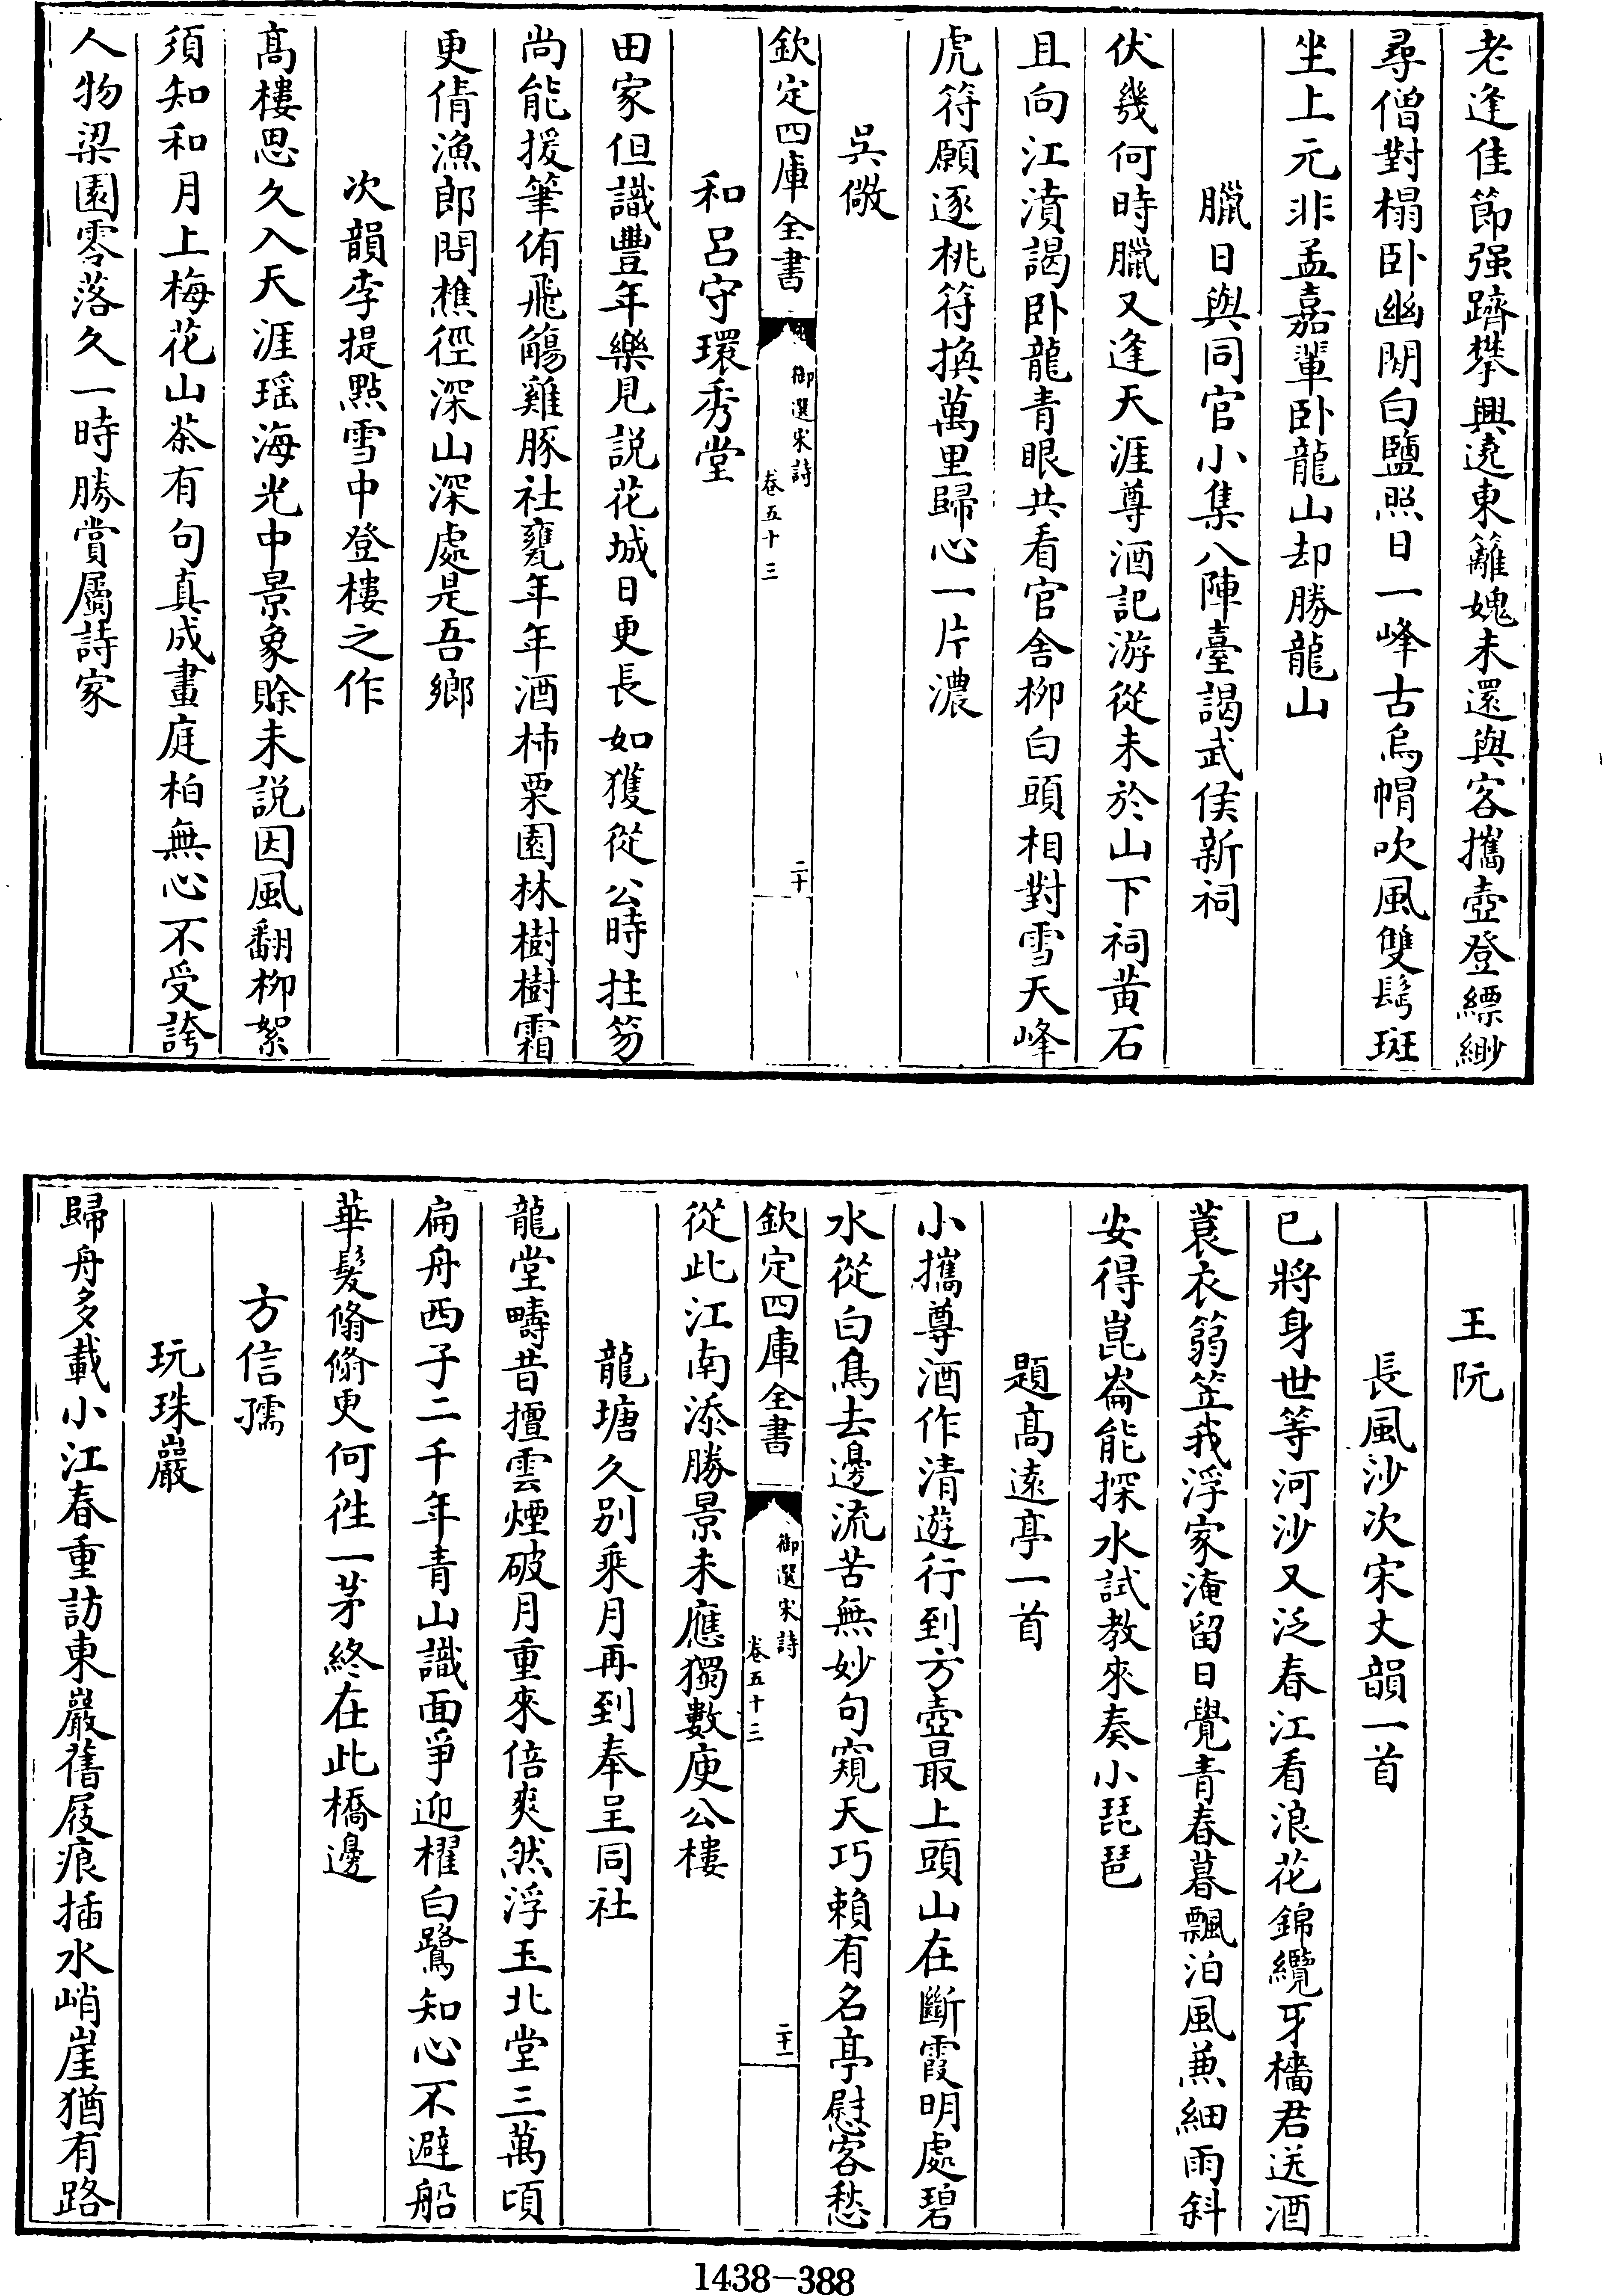 老逢佳節强躋攀興遶東籬媿未還與客攜壺登縹緲
尋僧對榻卧幽閒白鹽照日一峰古烏帽吹風雙鬂斑
坐上元非孟嘉輩卧龍山却勝龍山
臘日與同官小集八陣臺謁武侯新祠
伏幾何時臘又逢天涯尊酒記游從未於山下祠黄石
且向江濆謁卧龍青眼共看官舍柳白頭相對雪天峰
虎符願逐桃符換萬里歸心一片濃
吳儆
欽定四庫全書
御選宋詩
卷五十三
二十
和呂守環秀堂
田家但識豐年樂見説花城日更長如獲從公時拄笏
尚能援筆侑飛觴雞豚社甕年年酒柿栗園林樹樹霜
更倩漁郎問樵徑深山深處是吾鄉
次韻李提點雪中登樓之作
高樓思久入天涯瑶海光中景象賒未説因風翻柳絮
須知和月上梅花山茶有句真成畫庭柏無心不受誇
人物梁園零落久一時勝賞屬詩家
王阮
長風沙次宋丈韻一首
已將身世等河沙又泛春江看浪花錦纜牙檣君送酒
蓑衣篛笠我浮家淹留日覺青春暮飄泊風兼細雨斜
安得崑崙能探水試教來奏小琵琶
題高遠亭一首
小攜尊酒作清遊行到方壺最上頭山在斷霞明處碧
水從白鳥去邊流苦無妙句窺天巧賴有名亭慰客愁
欽定四庫全書
御選宋詩
卷五十三
二十一
從此江南添勝景未應獨數庾公樓
龍塘久别乘月再到奉呈同社
龍堂疇昔擅雲煙破月重來倍爽然浮玉北堂三萬頃
扁舟西子二千年青山識面爭迎櫂白鷺知心不避船
華髮翛翛更何徃一茅終在此橋邊
方信孺
玩珠巖
歸舟多載小江春重訪東巖舊屐痕插水峭崖猶有路
1438-388